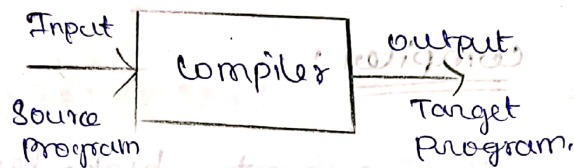 Input
Source
Program
Compiler
output.
Target
Program.